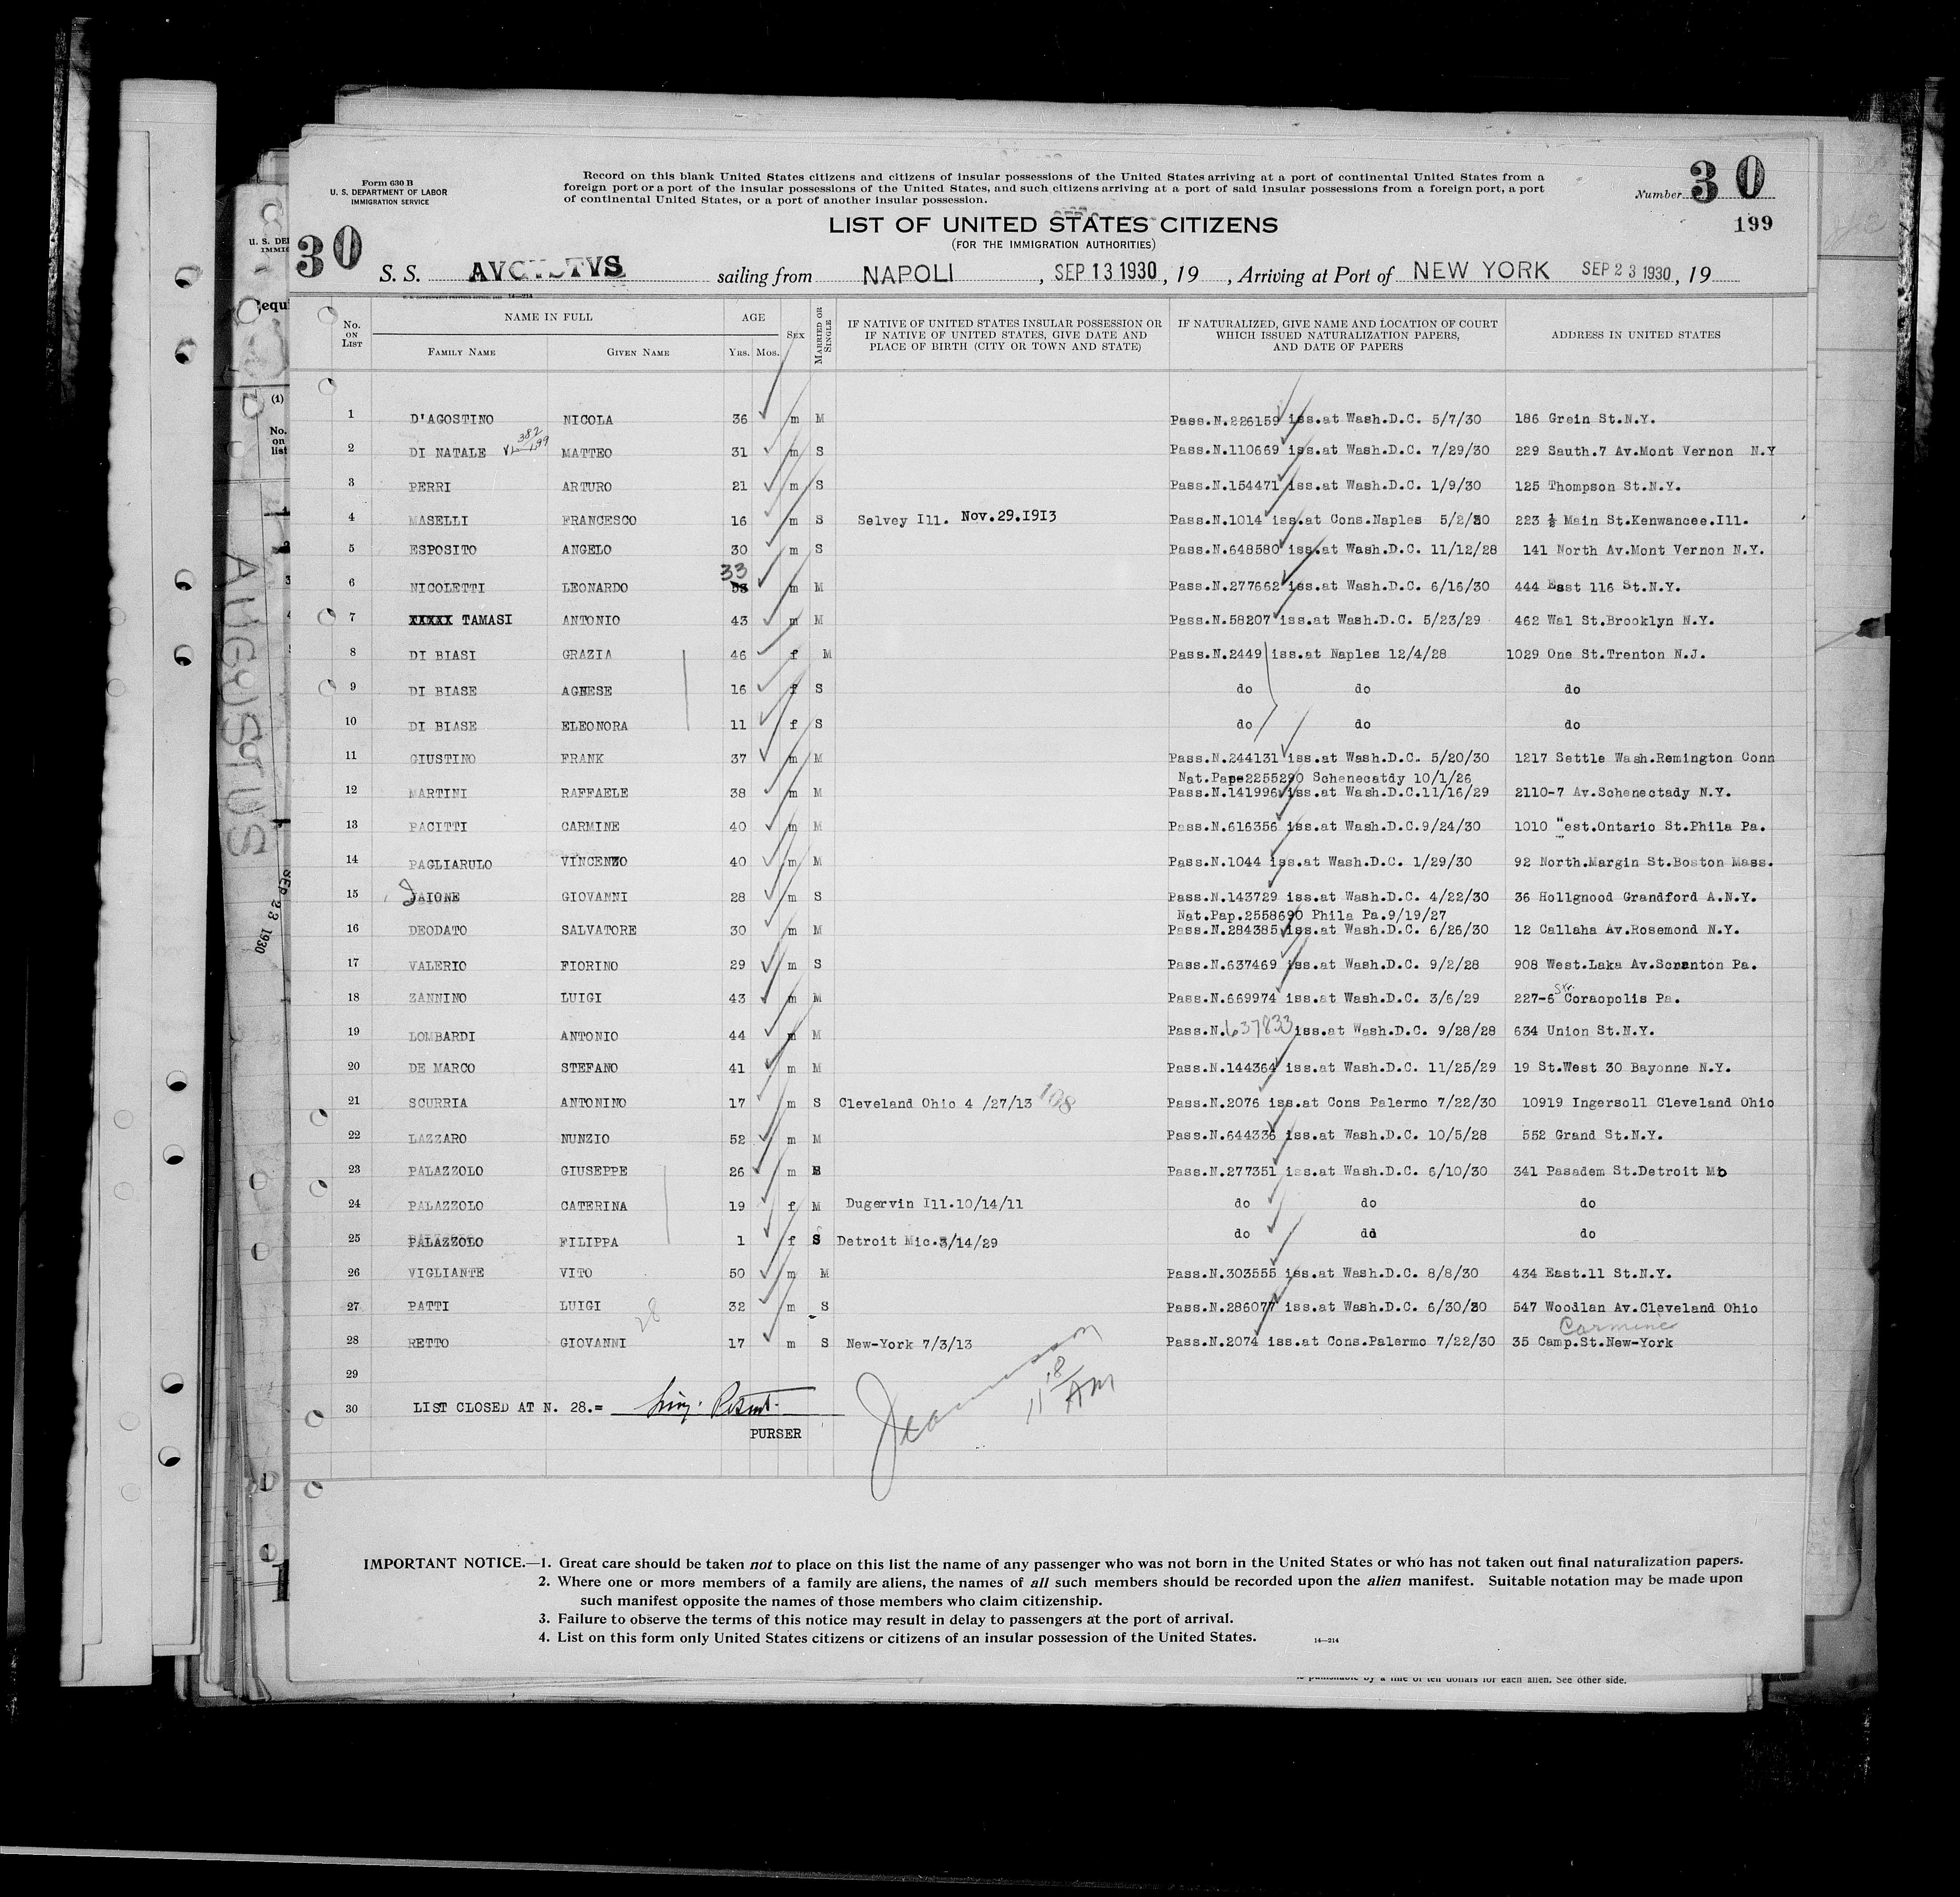 Form 630 B
U. S. DEPARTMENT OF LABOR
IMMIGRATION SERVICE
Record on this blank United States citizens and citizens of insular possessions of the United States arriving at a port of continental United States from a
foreign port or a port of the insular possessions of the United States, and such citizens arriving at a port of said insular possessions from a foreign port, a port
of continental United States, or a port of another insular possession.
Number 30
199
LIST OF UNITED STATES CITIZENS
(FOR THE IMMIGRATION AUTHORITIES)
30 S. S. AVGVSTVS sailing from NAPOLI, SEP 13 1930, 19 , Arriving at Port of NEW YORK SEP 23 1930, 19
No. ON LIST NAME IN FULL AGE SEX MARRIED OR SINGLE IF NATIVE OF UNITED STATES INSULAR POSSESSION OR IF NATIVE OF UNITED STATES, GIVE DATE AND PLACE OF BIRTH (CITY OR TOWN AND STATE) IF NATURALIZED, GIVE NAME AND LOCATION OF COURT WHICH ISSUED NATURALIZATION PAPERS, AND DATE OF PAPERS ADDRESS IN UNITED STATES
FAMILY NAME GIVEN NAME YRS. MOS.
1 D'AGOSTINO NICOLA 36 m M Pass.N.226159 iss.at Wash.D.C. 5/7/30 186 Grein St.N.Y.
2 DI NATALE 382 199 MATTEO 31 m S Pass.N.110669 iss.at Wash.D.C. 7/29/30 229 Sauth.7 Av.Mont Vernon N.Y
3 PERRI ARTURO 21 m S Pass.N.154471 iss.at Wash.D.C. 1/9/30 125 Thompson St.N.Y.
4 MASELLI FRANCESCO 16 m S Selvey Ill. Nov.29.1913 Pass.N.1014 iss.at Cons.Naples 5/2/30 223 ½ Main St.Kenwancee.Ill.
5 ESPOSITO ANGELO 30 m S Pass.N.648580 iss.at Wash.D.C. 11/12/28 141 North Av.Mont Vernon N.Y.
6 NICOLETTI LEONARDO 33 m M Pass.N.277662 iss.at Wash.D.C. 6/16/30 444 East 116 St.N.Y.
7 XXXXX TAMASI ANTONIO 43 m M Pass.N.58207 iss.at Wash.D.C. 5/23/29 462 Wal St.Brooklyn N.Y.
8 DI BIASI GRAZIA 46 f M Pass.N.2449 iss.at Naples 12/4/28 1029 One St.Trenton N.J.
9 DI BIASE AGNESE 16 f S do do do
10 DI BIASE ELEONORA 11 f S do do do
11 GIUSTINO FRANK 37 m M Pass.N.244131 iss.at Wash.D.C. 5/20/30 1217 Settle Wash.Remington Conn
Nat.Pape2255290 Schenecatdy 10/1/26
12 MARTINI RAFFAELE 38 m M Pass.N.141996 iss.at Wash.D.C.11/16/29 2110-7 Av.Schenectady N.Y.
13 PACITTI CARMINE 40 m M Pass.N.616356 iss.at Wash.D.C.9/24/30 1010 West.Ontario St.Phila Pa.
14 PAGLIARULO VINCENZO 40 m M Pass.N.1044 iss.at Wash.D.C. 1/29/30 92 North.Margin St.Boston Mass.
15 JAIONE GIOVANNI 28 m S Pass.N.143729 iss.at Wash.D.C. 4/22/30 36 Hollgnood Grandford A.N.Y.
Nat.Pap.2558690 Phila Pa.9/19/27
16 DEODATO SALVATORE 30 m M Pass.N.284385 iss.at Wash.D.C. 6/26/30 12 Callaha Av.Rosemond N.Y.
17 VALERIO FIORINO 29 m S Pass.N.637469 iss.at Wash.D.C. 9/2/28 908 West.Laka Av.Scranton Pa.
18 ZANNINO LUIGI 43 m M Pass.N.669974 iss.at Wash.D.C. 3/6/29 227-6 Str. Coraopolis Pa.
19 LOMBARDI ANTONIO 44 m M Pass.N.637833 iss.at Wash.D.C. 9/28/28 634 Union St.N.Y.
20 DE MARCO STEFANO 41 m M Pass.N.144364 iss.at Wash.D.C. 11/25/29 19 St.West 30 Bayonne N.Y.
21 SCURRIA ANTONINO 17 m S Cleveland Ohio 4 /27/13 108 Pass.N.2076 iss.at Cons Palermo 7/22/30 10919 Ingersoll Cleveland Ohio
22 LAZZARO NUNZIO 52 m M Pass.N.644336 iss.at Wash.D.C. 10/5/28 552 Grand St.N.Y.
23 PALAZZOLO GIUSEPPE 26 m Pass.N.277351 iss.at Wash.D.C. 6/10/30 341 Pasadem St.Detroit
24 PALAZZOLO CATERINA 19 f M Dugervin Ill.10/14/11 do do do
25 PALAZZOLO FILIPPA 1 f S Detroit Mic.3/14/29 do dd do
26 VIGLIANTE VITO 50 m M Pass.N.303555 iss.at Wash.D.C. 8/8/30 434 East.11 St.N.Y.
27 PATTI LUIGI 32 m S Pass.N.286077 iss.at Wash.D.C. 6/30/30 547 Woodlan Av.Cleveland Ohio
28 RETTO GIOVANNI 28 17 m S New-York 7/3/13 Pass.N.2074 iss.at Cons.Palermo 7/22/30 35 Carmine Camp.St.New-York
29
30 LIST CLOSED AT N. 28.=
PURSER
AM
IMPORTANT NOTICE.—1. Great care should be taken not to place on this list the name of any passenger who was not born in the United States or who has not taken out final naturalization papers.
2. Where one or more members of a family are aliens, the names of all such members should be recorded upon the alien manifest. Suitable notation may be made upon
such manifest opposite the names of those members who claim citizenship.
3. Failure to observe the terms of this notice may result in delay to passengers at the port of arrival.
4. List on this form only United States citizens or citizens of an insular possession of the United States.
14—214
AUGUSTUS
SEP 23 1930
See other side.